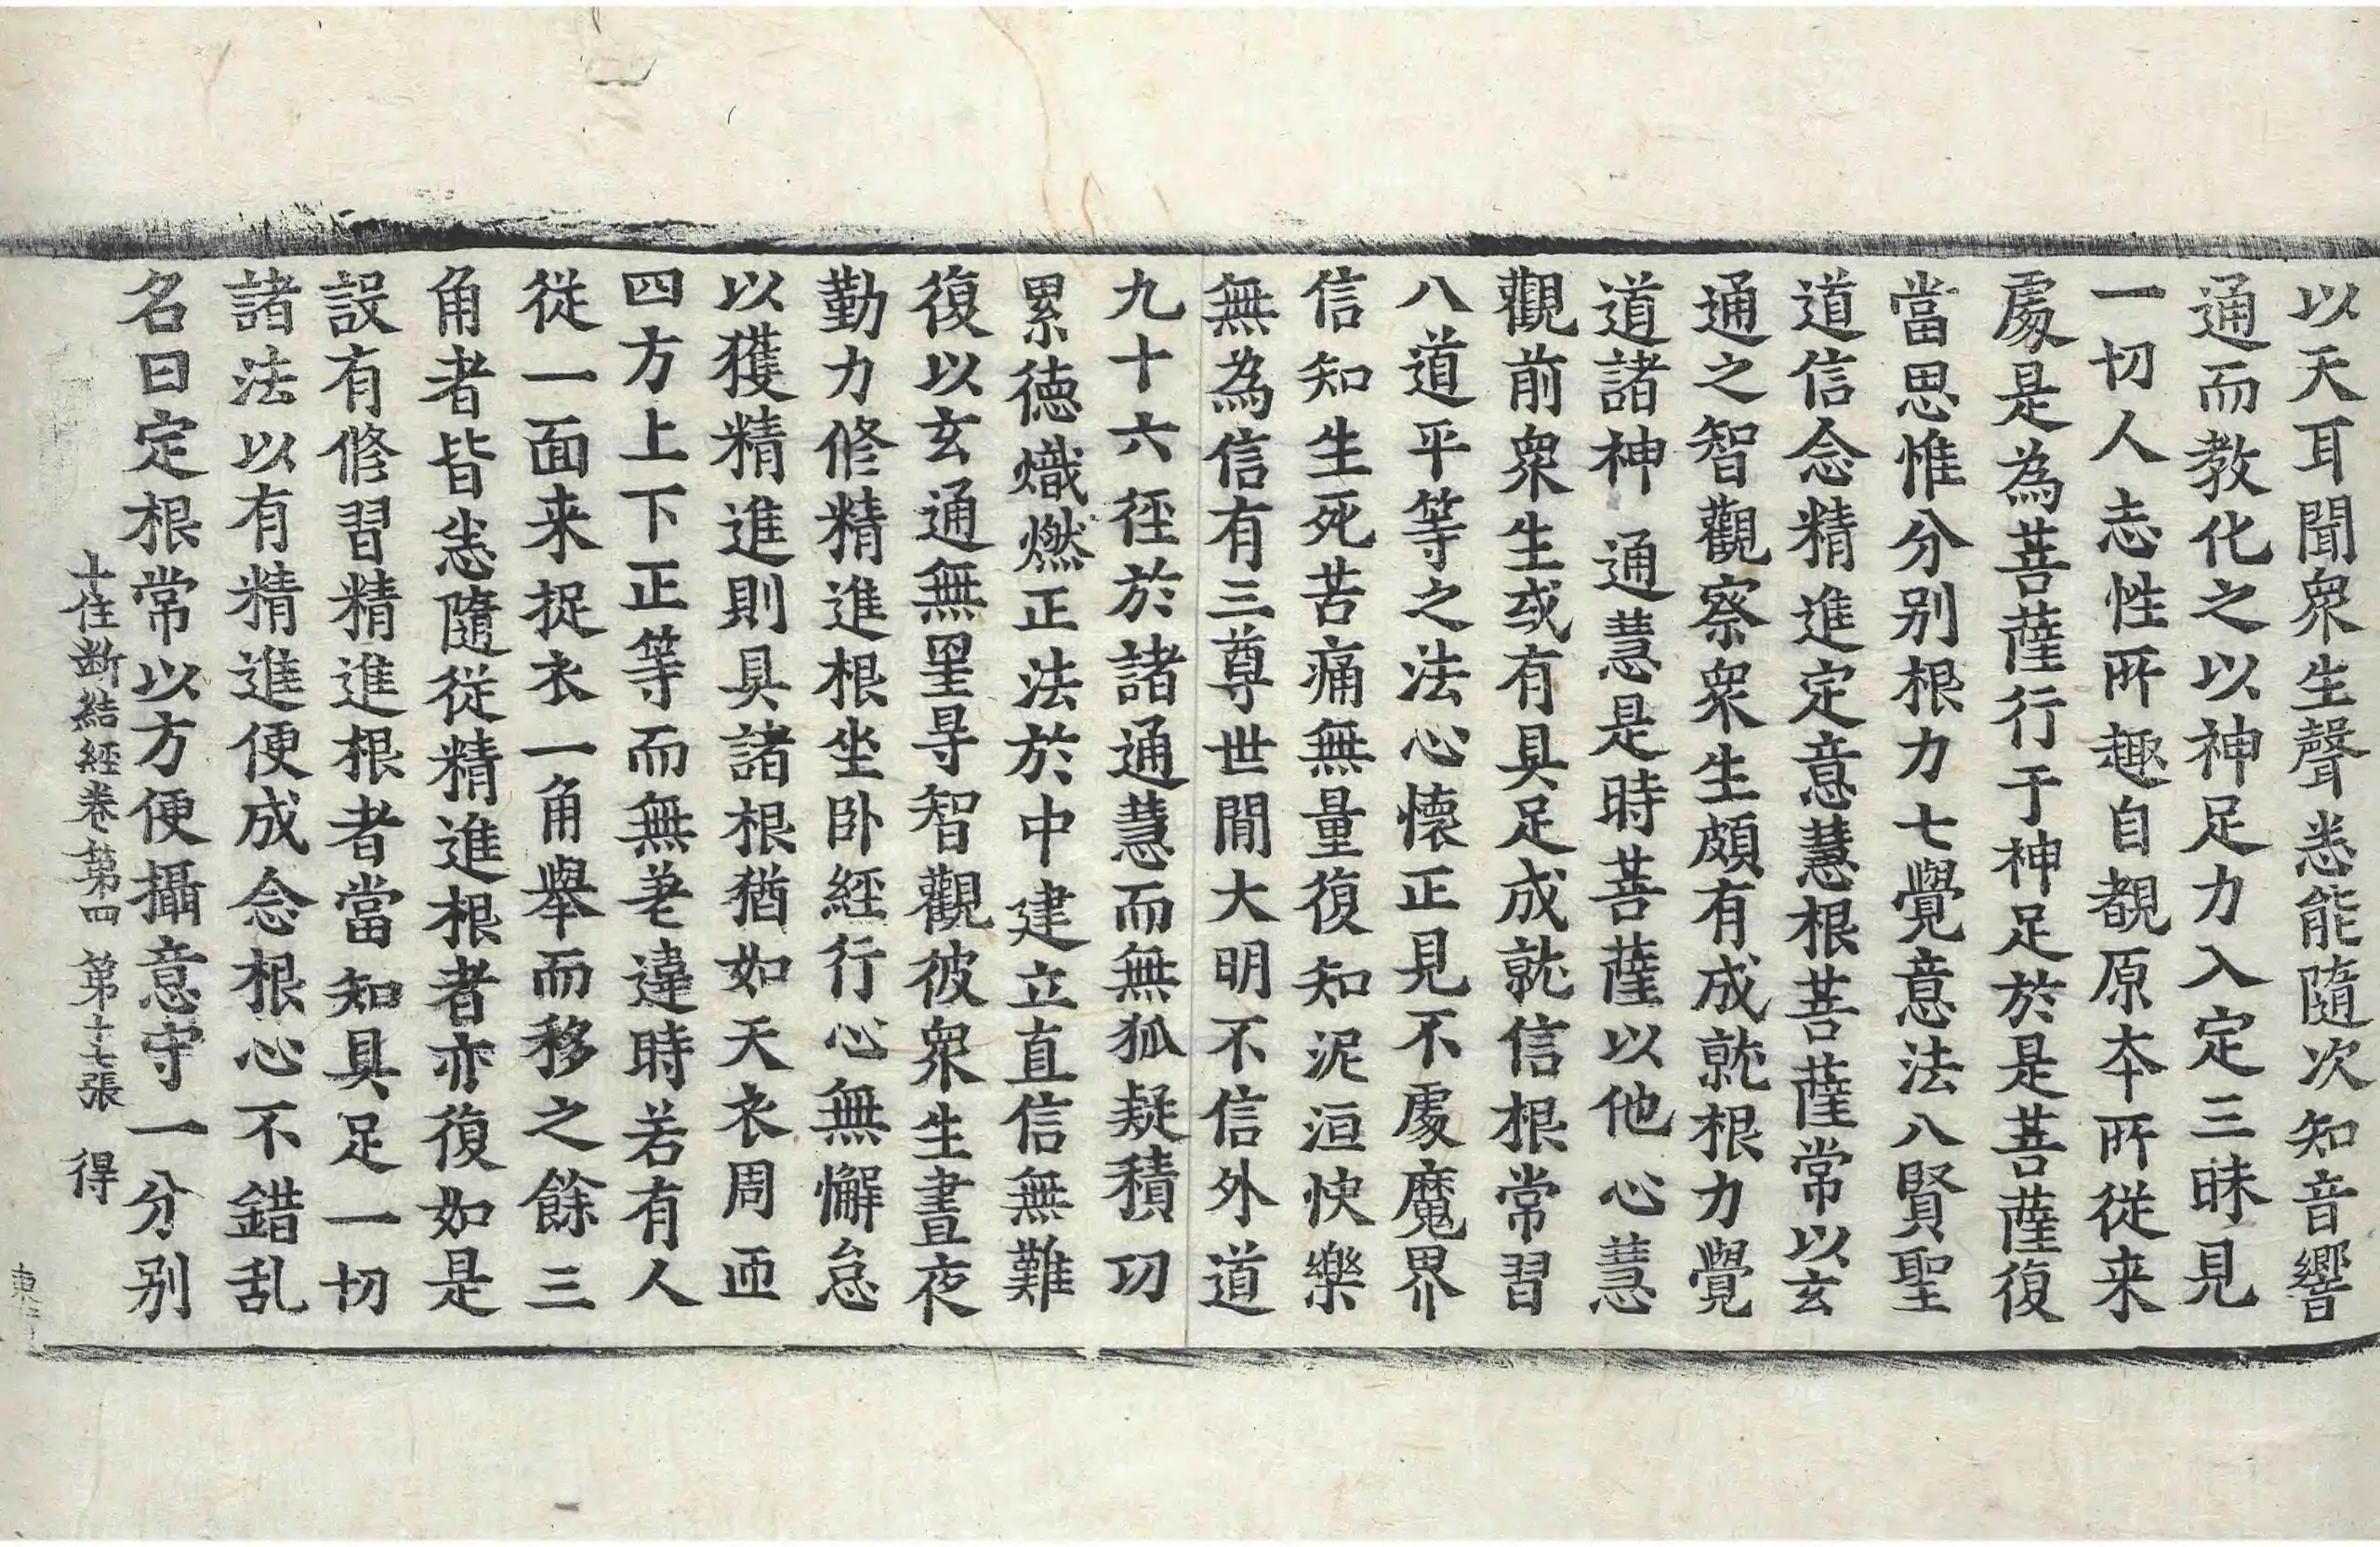 以天耳聞衆生聲悉能隨次知音響
通而教化之以神足力入定三昧見
一切人志性所趣自覩原本所從来
處是為菩薩行于神足於是菩薩復
當思惟分別根力七覺意法八賢聖
道信念精進定意慧根菩薩常以玄
通之智觀察衆生頗有成就根力覺
道諸神通慧是時菩薩以他心慧
觀前衆生或有具足成就信根常習
八道平等之法心懷正見不處魔界
信知生死苦痛無量復知泥洹快樂
無為信有三尊世間大明不信外道
九十六徑於諸通慧而無狐疑積功
累德熾燃正法於中建立直信無難
復以玄通無罣㝵智觀彼衆生晝夜
勤力修精進根坐卧經行心無懈怠
以獲精進則具諸根猶如天衣周帀
四方上下正等而無差違時若有人
從一面来捉衣一角舉而移之餘三
角者皆悉隨從精進根者亦復如是
設有修習精進根者當知具足一切
諸法以有精進便成念根心不錯乱
名曰定根常以方便攝意守一分別
十住断結經卷第四 第十七張 得